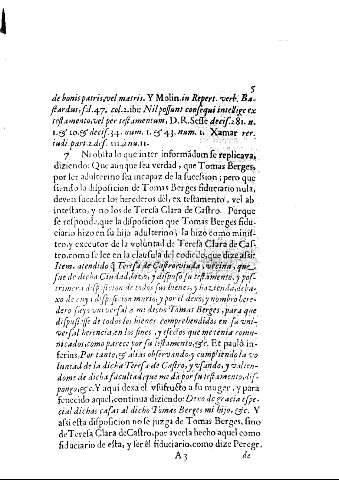 5
de bonis patris, vel matris. Y Molin. in Repert. verb. Ba-
stardus, f.d.47. col.2. ibi: Nil possunt consequi intellige ex
testamento, vel per testamentum, D.R. Sesse decis. 281. n.
1. & 10. & decis. 34. num. 1. & 43. num. 1. Xamar rer.
iudi. part. 2. def.
7 Ni obsta lo que inter informãdum se replicava,
diziendo: Que aunque sea verdad, que Tomas Berges,
por ser adulterino sea incapaz de la sucession; pero que
siendo la disposicion de Tomas Berges fiduciario nula,
deven suceder los herederos del, ex testamento, vel ab
intestato, y no los de Teresa Clara de Castro. Porque
se responde, que la disposicion que Tomas Berges fidu-
ciario hizo en su hijo adulterino; la hizo como minis-
tro, y executor de la voluntad de Teresa Clara de Cas-
tro, como se lee en la clausula del codicilo, que dize assi:
Item, atendido q̃ Teresa de Castro viuda, vezina, que
fue de dicha Ciudad, hizo, y dispuso su testamento, y pos-
trimera disposicion de todos sus bienes, y hazienda, deba-
xo de cuya disposicion murio, y por el dexo, y nombro here-
dero suyo vniversal a mi dicho Tomas Berges, para que
dispusiesse de todos los bienes comprehendidos en su vni-
versal herencia en los fines, y efectos que me tenia comu-
nicados, como parece por su testamento, &c. Et paulò in-
ferius. Por tanto, & aliàs observando, y cumpliendo la vo
luntad de la dicha Teresa de Castro, y usando, y valien-
dome de dicha facultad que me dà por su testamento, dis-
pongo, &c. Y aqui dexa el vsufructo a su muger, y para
fenecido aquel, continua diziendo: Dexo de gracia espe-
cial dichas casas al dicho Tomas Berges mi hijo, &c. Y
assi esta disposicion no se juzga de Tomas Berges, sino
de Teresa Clara de Castro, por averla hecho aquel como
fiduciario de esta, y ser èl fiduciario, como dize Peregr.
A 3
de